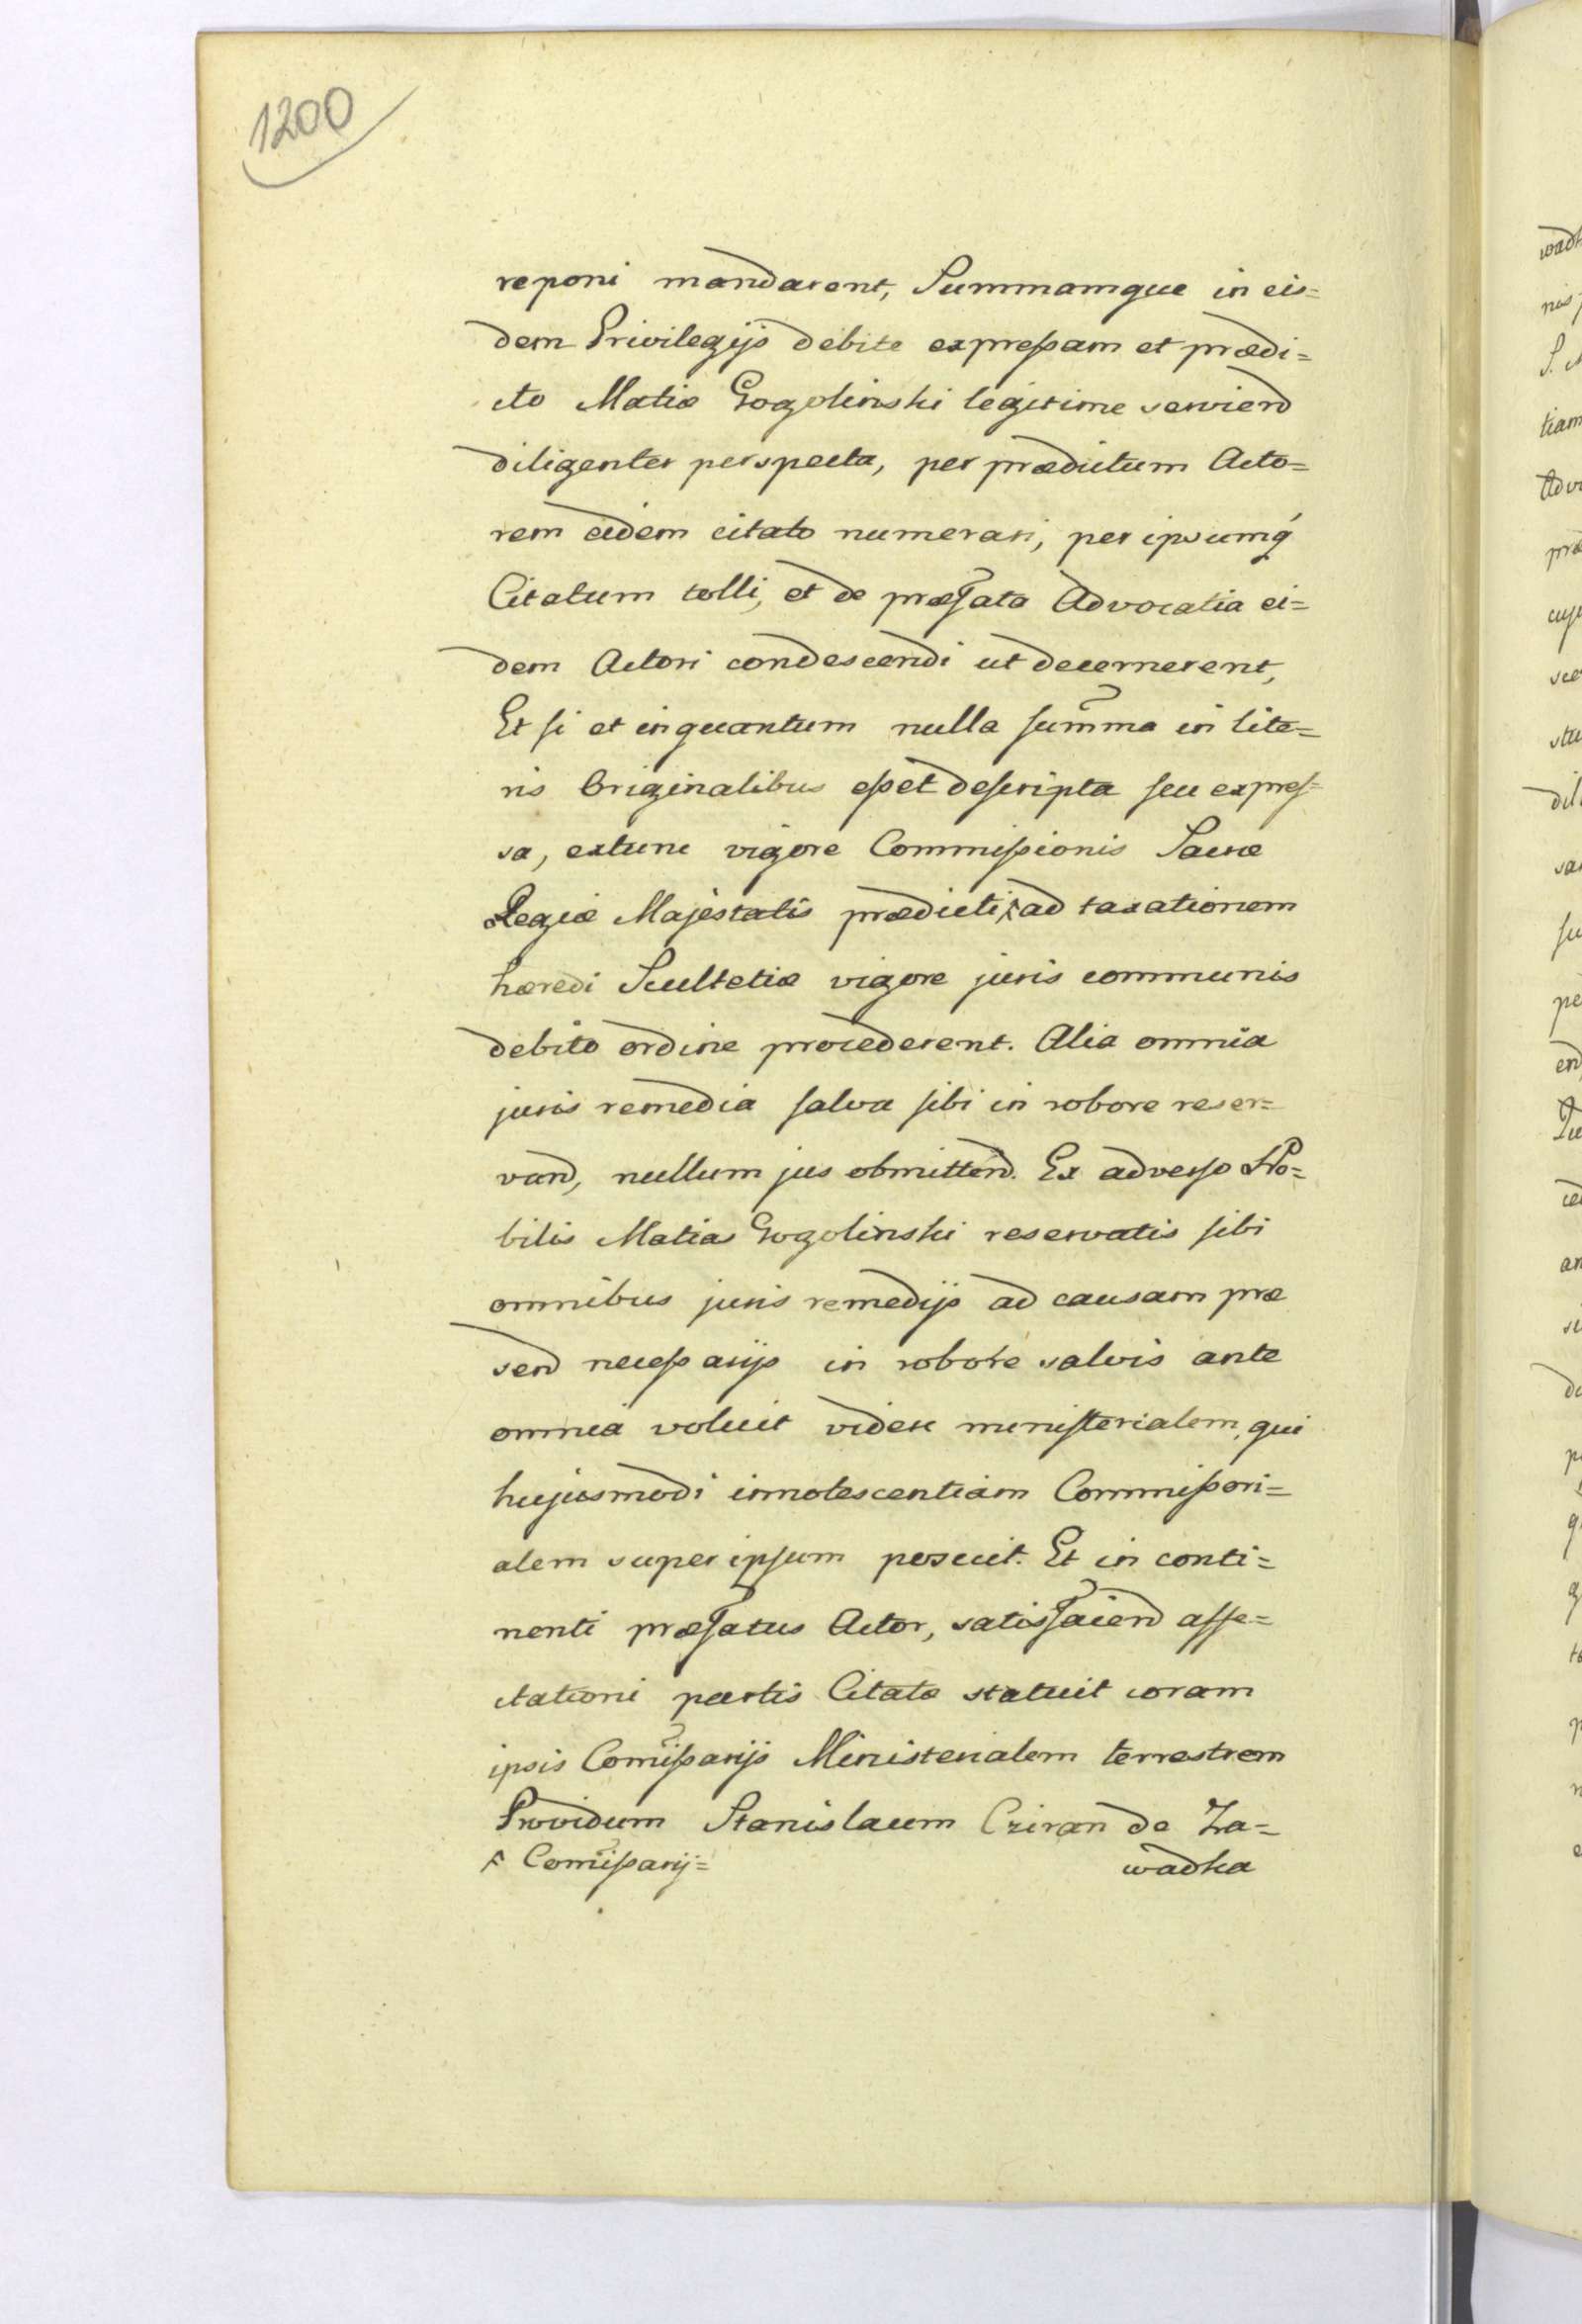 1200
reponi mandarent, Summamque in eis=
dem Privilegijs debite expreſsam et prædi=
cto Matiæ Gogolinski legitime serviend
diligenter perspecta, per prædictum Acto=
rem eidem citato numerari, per ipsumq́
Citatum tolli, et de præfata Advocatia ei=
dem Actori condescendi ut decernerent,
Et ſi et inquantum nulla ſum̃ma in lite=
ris Originalibus eſset deſcripta ſeu expreſ=
sa, extunc vigore Commiſsionis Sacræ
Regiæ Majestatis prædicti ^ ad taxationem
hæredi Scultetiæ vigore juris communis
debito ordine procederent. Alia omnia
juris remedia ſalva ſibi in robore reser=
vand, nullum jus obmittend. Ex adverſo No=
bilis Matias Gogolinski reservatis ſibi
omnibus juris remedijs ad causam præ
send neceſsarijs in robore salvis ante
omnia voluit videre miniſterialem, qui
hujusmodi innotescentiam Commiſsori=
alem super ipſum posuit. Et in conti=
nenti præfatus Actor, satisfaciend affe=
ctationi partis Citatæ statuit coram
ipsis Com̃iſsarijs Ministerialem terrestrem
Providum Stanislaum Cziran de Za=
^ Com̃iſsarij=
wadka
wadk
nis
S.
tiam
Adv
præ
cuju
sce
stu
dil